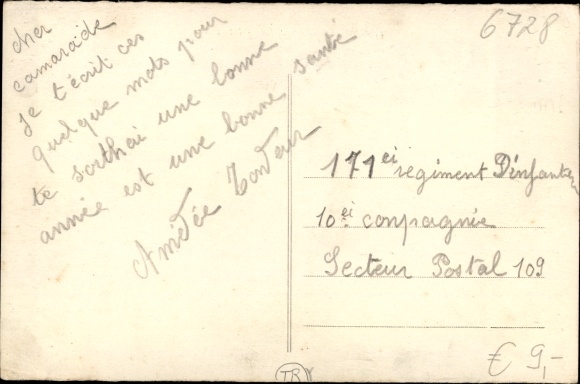 6728
cher
camarade
je t'écrit ces
quelque mots pour
te sorthai une bonne
année est une bonne santé
Amédée Tondeur
171ei regiment D'infanter
10ei conpagnie
Secteur Postal 109
€ 9,-
TR